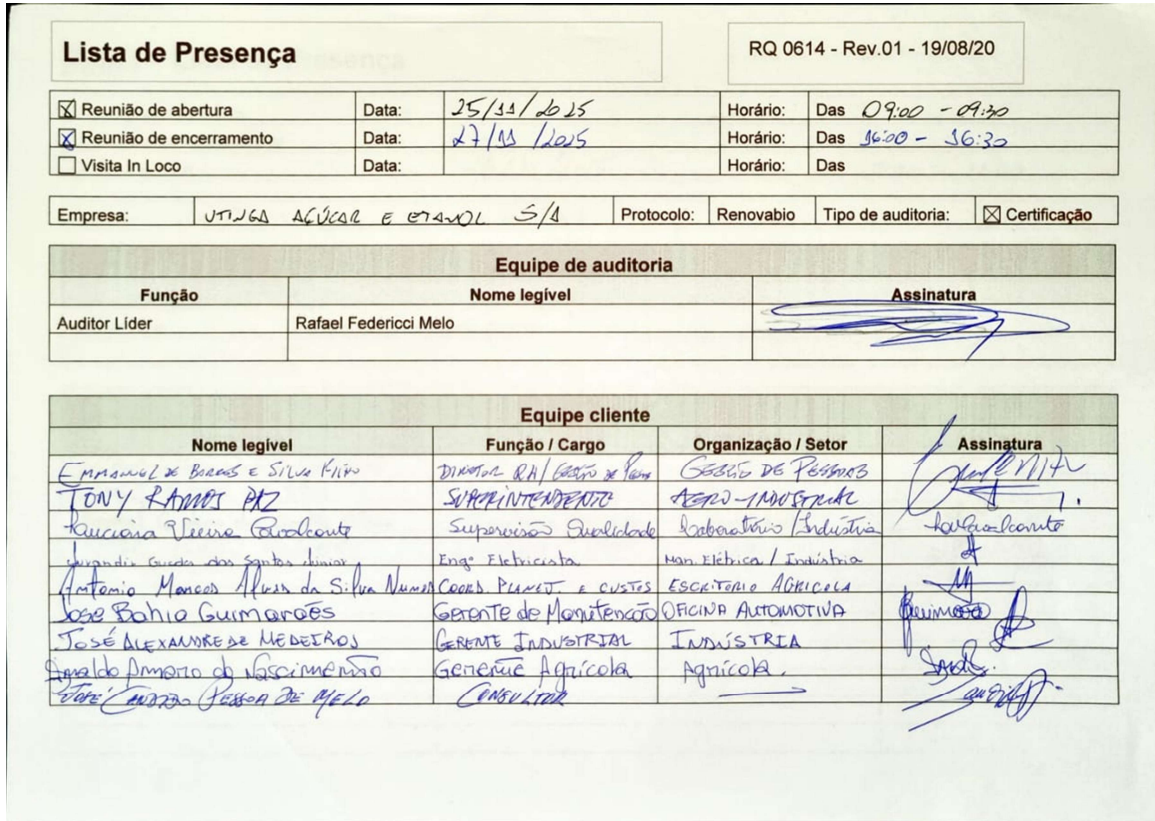 Lista de Presença
RQ 0614 - Rev.01 - 19/08/20
☒ Reunião de abertura Data: 25/11/2025 Horário: Das 09:00 - 09:30
☒ Reunião de encerramento Data: 27/11/2025 Horário: Das 16:00 - 16:30
☐ Visita In Loco Data: Horário: Das
Empresa: UTINGA AÇÚCAR E ETANOL S/A Protocolo: Renovabio Tipo de auditoria: ☒ Certificação
Equipe de auditoria
Função Nome legível Assinatura
Auditor Líder Rafael Federicci Melo
Equipe cliente
Nome legível Função / Cargo Organização / Setor Assinatura
EMMANUEL DE BARROS E SILVA FILHO DIRETOR RH/GESTÃO DE GESTÃO DE PESSOAS
TONY RAMOS PAZ SUPERINTENDENTE AGRO-INDUSTRIAL
Luciana Vieira Cavalcante Supervisão Qualidade Laboratório / Indústria
Jurandir Guedes dos Santos Junior Engº Eletricista Man. Elétrica / Indústria
Antonio Marcos Alves da Silva Nunes COORD. PLANEJ. E CUSTOS ESCRITORIO AGRICOLA
Jose Bahia Guimarães Gerente de Manutenção OFICINA AUTOMOTIVA
JOSÉ ALEXANDRE DE MEDEIROS GERENTE INDUSTRIAL INDÚSTRIA
Amaro do Nascimento Gerente Agrícola Agrícola.
JOSÉ PESSOA DE MELO CONSULTOR